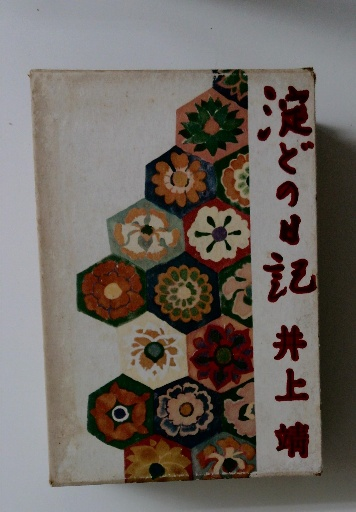 淀どの日記
井上靖